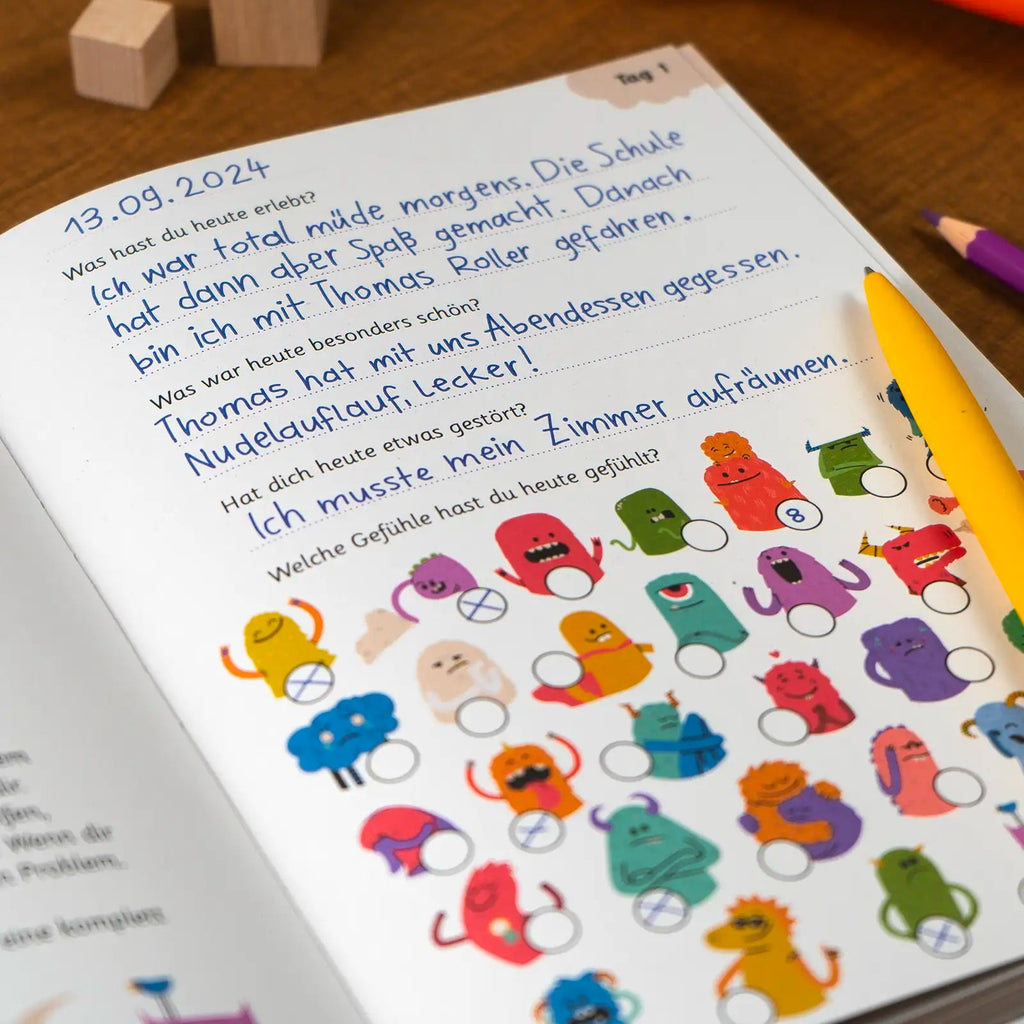 Tag 1
13.09.2024
Was hast du heute erlebt?
Ich war total müde morgens. Die Schule
hat dann aber Spaß gemacht. Danach
bin ich mit Thomas Roller gefahren.
Was war heute besonders schön?
Thomas hat mit uns Abendessen gegessen.
Nudelauflauf, Lecker!
Hat dich heute etwas gestört?
Ich musste mein Zimmer aufräumen.
Welche Gefühle hast du heute gefühlt?
8
Wann dir
Problem.
eine komplett